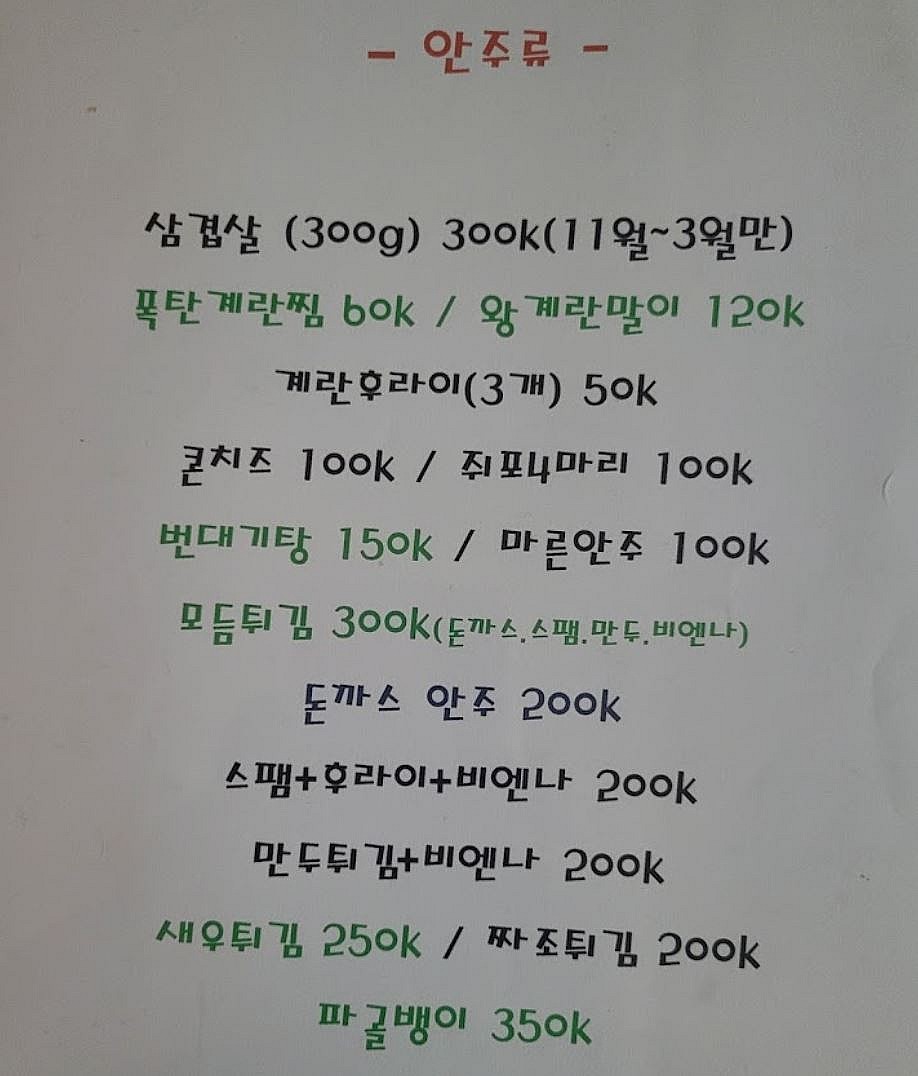 - 안주류 -
삼겹살 (300g) 300k(11월~3월만)
폭탄계란찜 60k / 왕계란말이 120k
계란후라이(3개) 50k
콘치즈 100k / 쥐포4마리 100k
번대기탕 150k / 마른안주 100k
모듬튀김 300k(돈까스.스팸.만두.비엔나)
돈까스 안주 200k
스팸+후라이+비엔나 200k
만두튀김+비엔나 200k
새우튀김 250k / 짜조튀김 200k
파골뱅이 350k